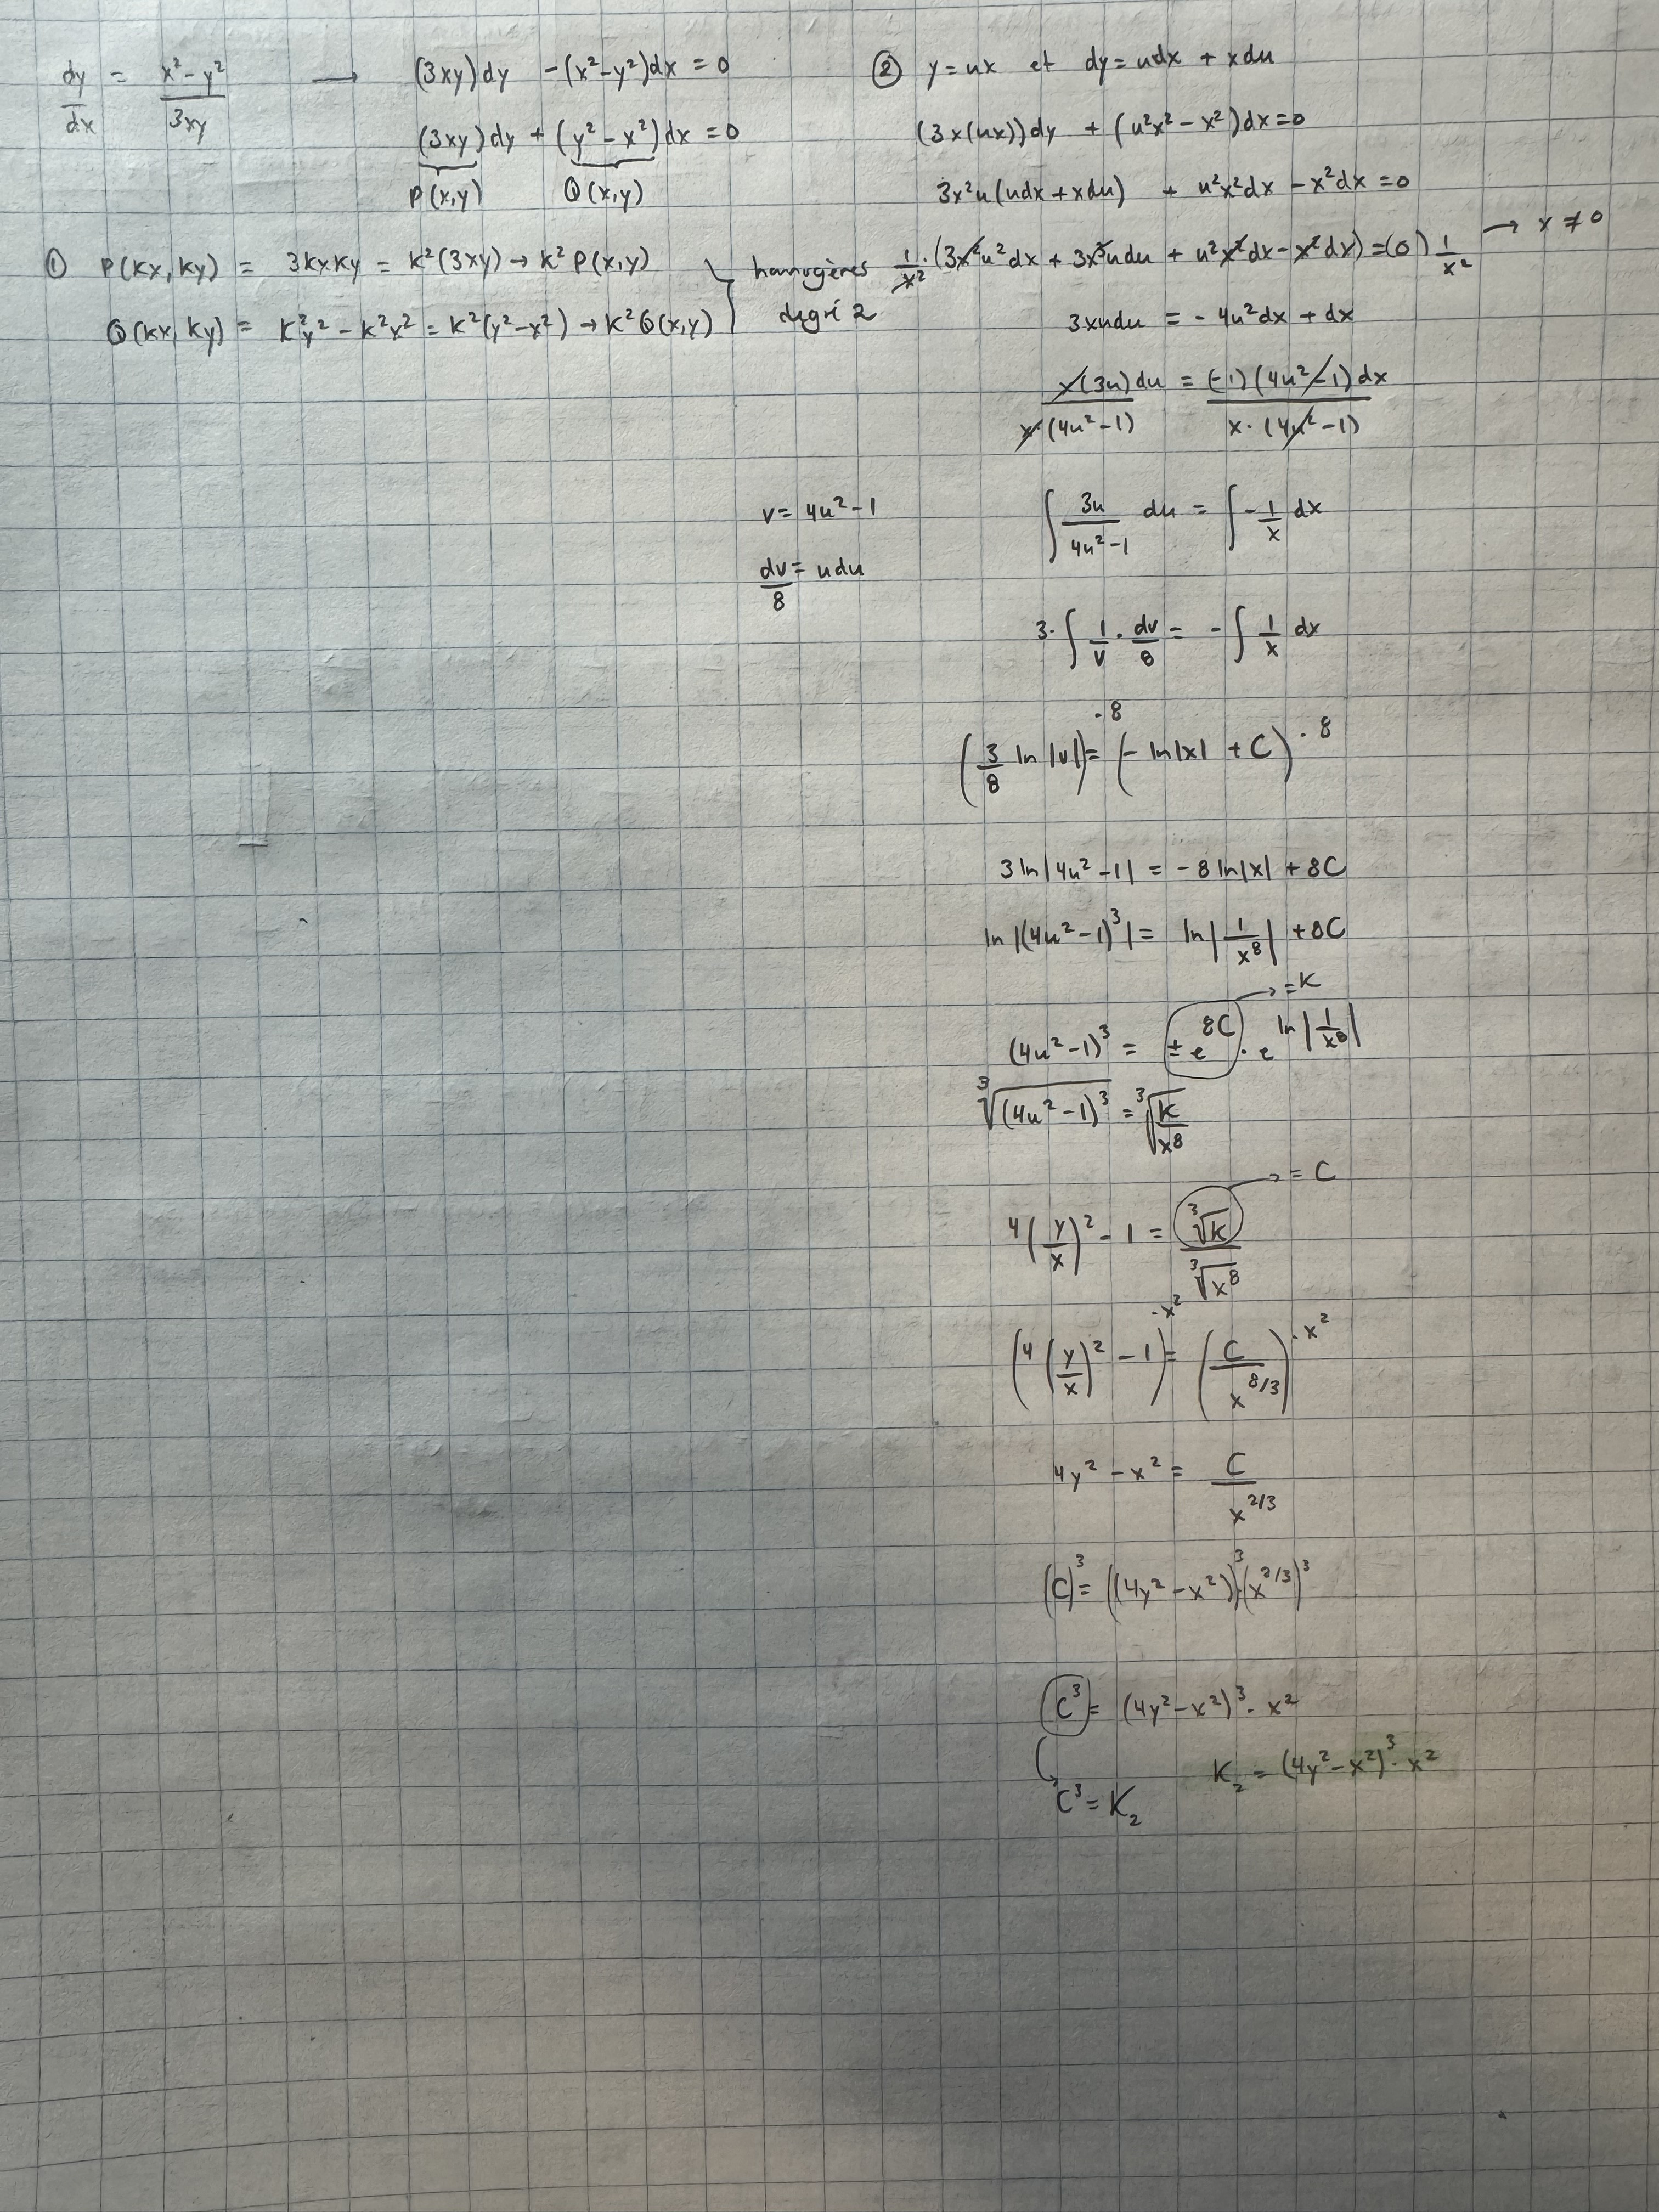 dy/dx = (x² – y²)/(3xy) → (3xy)dy – (x² – y²)dx = 0
(3xy)dy + (y² – x²)dx = 0
P(x,y) Q(x,y)
① P(kx, ky) = 3kxky = k²(3xy) → k² P(x,y)
Q(kx, ky) = k²y² – k²x² = k²(y² – x²) → k² Q(x,y)
} homogènes
degré 2
② y = ux et dy = udx + xdu
(3x(ux))dy + (u²x² – x²)dx = 0
3x²u(udx + xdu) + u²x²dx – x²dx = 0
1/x² · (3x²u²dx + 3x³udu + u²x²dx – x²dx) = (0) 1/x² → x ≠ 0
3xudu = – 4u²dx + dx
x(3u)du / x·(4u² – 1) = (–1)(4u² – 1)dx / x·(4u² – 1)
v = 4u² – 1
dv/8 = udu
∫ 3u/(4u² – 1) du = ∫ – 1/x dx
3· ∫ 1/v · dv/8 = – ∫ 1/x dx
(3/8 ln|v|)·8 = (– ln|x| + C)·8
3 ln|4u² – 1| = – 8 ln|x| + 8C
ln|(4u² – 1)³| = ln|1/x⁸| + 8C
(4u² – 1)³ = ± e^(8C) · e^(ln|1/x⁸|) → = K
∛((4u² – 1)³) = ∛(K/x⁸)
4(y/x)² – 1 = ∛K / ∛x⁸ → = C
(4(y/x)² – 1)·x² = (C/x^(8/3))·x²
4y² – x² = C/x^(2/3)
(C)³ = ((4y² – x²))³·(x^(2/3))³
C³ = (4y² – x²)³ · x²
C³ = K₂
K₂ = (4y² – x²)³ · x²